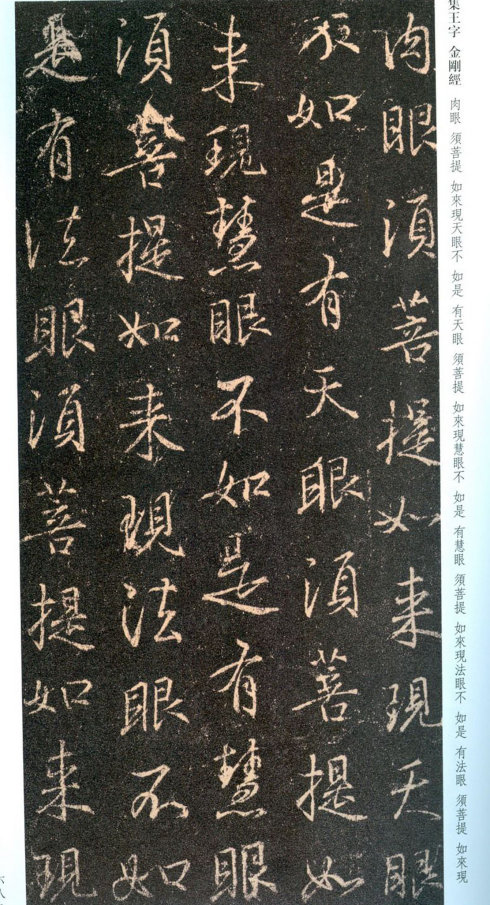 集王字 金剛經 肉眼 須菩提 如來現天眼不 如是 有天眼 須菩提 如來現慧眼不 如是 有慧眼 須菩提 如來現法眼不 如是 有法眼 須菩提 如來現
肉眼須菩提如来現天眼
不如是有天眼須菩提如
来現慧眼不如是有慧眼
須菩提如来現法眼不如
是有法眼須菩提如来現
六八